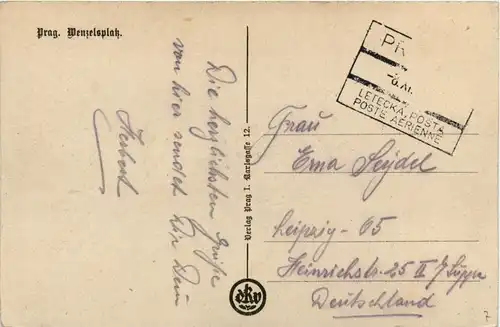 Prag. Wenzelsplatz.
Die herzlichsten Grüße
von hier sendet Dir Dein
Herbert
Verlag Prag 1. Karpfgasse 12.
dkv
LETECKÁ POSTA
POSTE AÉRIENNE
Frau
Erna Seydel
Leipzig - O5
Heinrichstr. 25 II
Deutschland